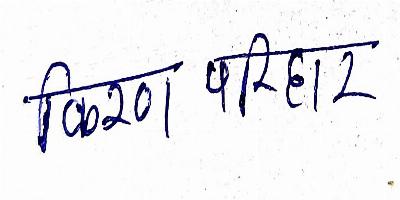 किरण परिहार